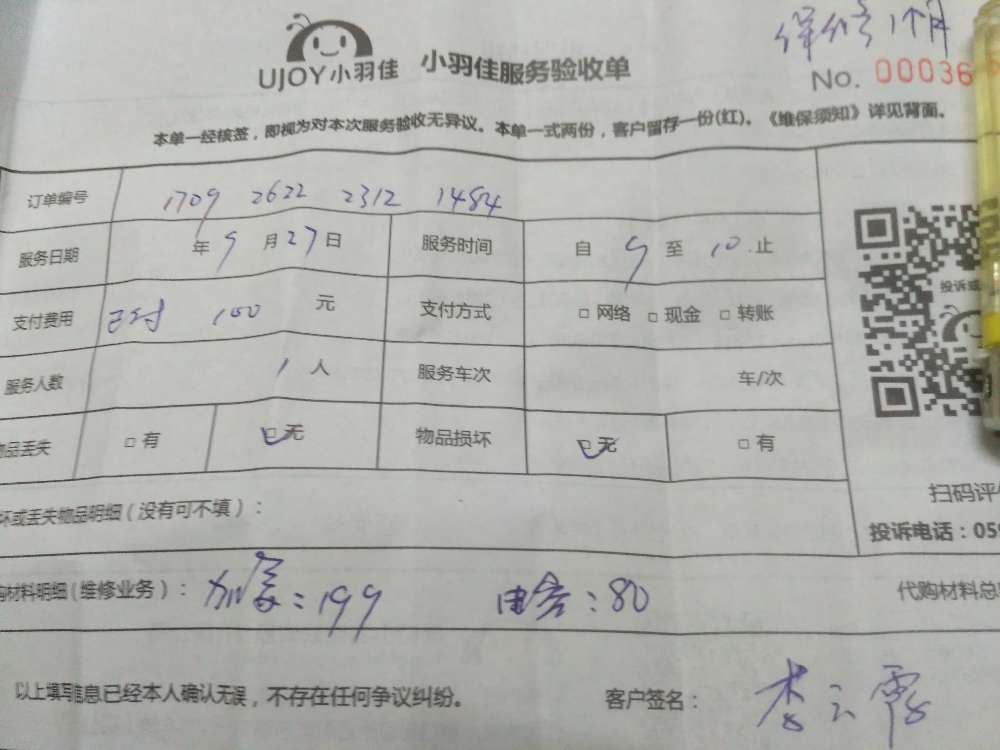 保修1个月
UJOY小羽佳 小羽佳服务验收单
No. 00036
本单一经核签，即视为对本次服务验收无异议。本单一式两份，客户留存一份(红)。《维保须知》详见背面。
订单编号 1709 2622 2312 1484
服务日期 年9月27日 服务时间 自9至10.止
支付费用 已付 100 元 支付方式 □网络 □现金 □转账
服务人数 1人 服务车次 车/次
品丢失 □有 □无 物品损坏 □无 □有
投诉或
扫码评
坏或丢失物品明细（没有可不填）：
投诉电话：059
购材料明细（维修业务）： 加氟：199 电容：80 代购材料总
以上填写信息已经本人确认无误，不存在任何争议纠纷。 客户签名： 李云霞